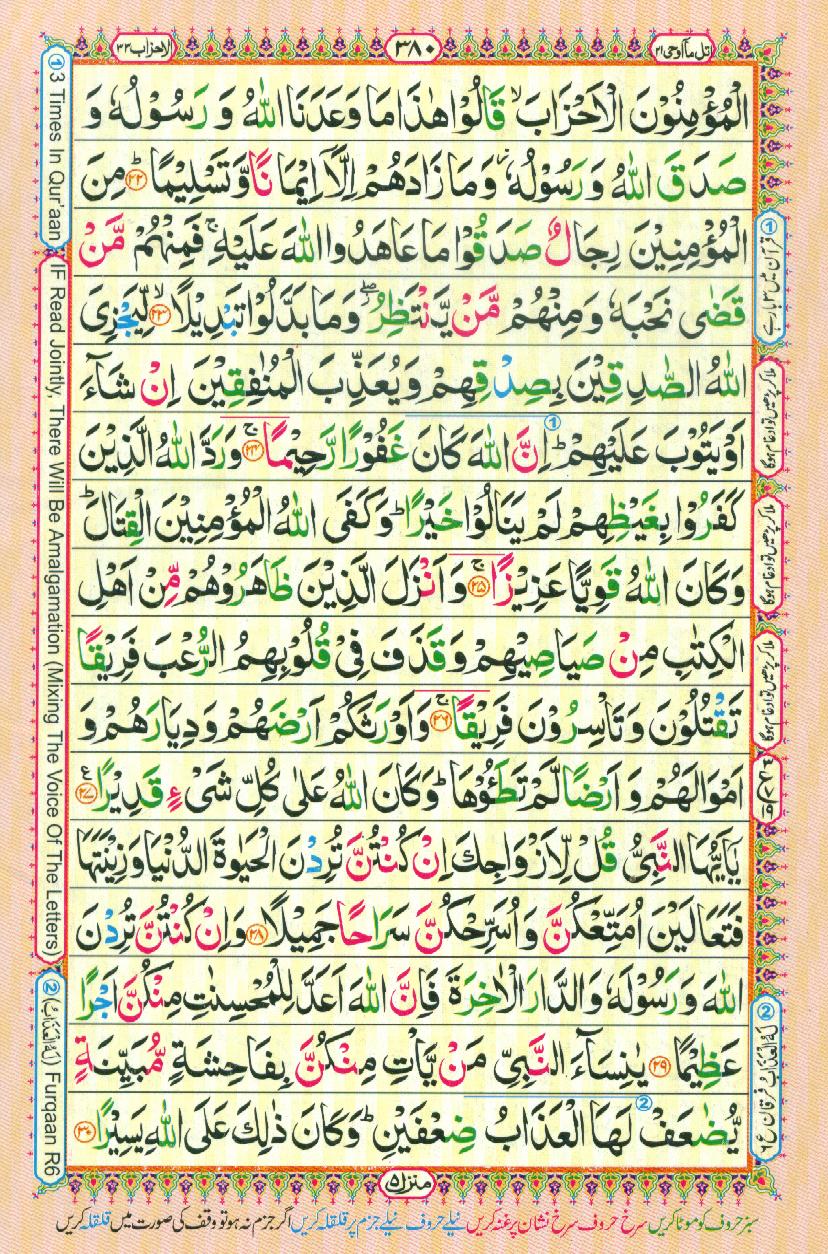 اتل مآ اوحی ۲۱
۳۸۰
الاحزاب ۳۳
الْمُؤْمِنُوْنَ الْاَحْزَابَ ۙ قَالُوْا هٰذَا مَا وَعَدَنَا اللّٰهُ وَ رَسُوْلُهٗ وَ
صَدَقَ اللّٰهُ وَ رَسُوْلُهٗ ؗ وَ مَا زَادَهُمْ اِلَّاۤ اِیْمَانًا وَّ تَسْلِیْمًا ؕ ۲۲ مِنَ
الْمُؤْمِنِیْنَ رِجَالٌ صَدَقُوْا مَا عَاهَدُوا اللّٰهَ عَلَیْهِ ۚ فَمِنْهُمْ مَّنْ
قَضٰی نَحْبَهٗ وَ مِنْهُمْ مَّنْ یَّنْتَظِرُ ۖ وَ مَا بَدَّلُوْا تَبْدِیْلًا ۙ ۲۳ لِّیَجْزِیَ
اللّٰهُ الصّٰدِقِیْنَ بِصِدْقِهِمْ وَ یُعَذِّبَ الْمُنٰفِقِیْنَ اِنْ شَآءَ
اَوْ یَتُوْبَ عَلَیْهِمْ ؕ ① اِنَّ اللّٰهَ كَانَ غَفُوْرًا رَّحِیْمًا ۚ ۲۴ وَ رَدَّ اللّٰهُ الَّذِیْنَ
كَفَرُوْا بِغَیْظِهِمْ لَمْ یَنَالُوْا خَیْرًا ؕ وَ كَفَی اللّٰهُ الْمُؤْمِنِیْنَ الْقِتَالَ ؕ
وَ كَانَ اللّٰهُ قَوِیًّا عَزِیْزًا ۚ ۲۵ وَ اَنْزَلَ الَّذِیْنَ ظَاهَرُوْهُمْ مِّنْ اَهْلِ
الْكِتٰبِ مِنْ صَیَاصِیْهِمْ وَ قَذَفَ فِیْ قُلُوْبِهِمُ الرُّعْبَ فَرِیْقًا
تَقْتُلُوْنَ وَ تَاْسِرُوْنَ فَرِیْقًا ۚ ۲۶ وَ اَوْرَثَكُمْ اَرْضَهُمْ وَ دِیَارَهُمْ وَ
اَمْوَالَهُمْ وَ اَرْضًا لَّمْ تَطَـُٔوْهَا ؕ وَ كَانَ اللّٰهُ عَلٰی كُلِّ شَیْءٍ قَدِیْرًا ۲۷
یٰۤاَیُّهَا النَّبِیُّ قُلْ لِّاَزْوَاجِكَ اِنْ كُنْتُنَّ تُرِدْنَ الْحَیٰوةَ الدُّنْیَا وَ زِیْنَتَهَا
فَتَعَالَیْنَ اُمَتِّعْكُنَّ وَ اُسَرِّحْكُنَّ سَرَاحًا جَمِیْلًا ۲۸ وَ اِنْ كُنْتُنَّ تُرِدْنَ
اللّٰهَ وَ رَسُوْلَهٗ وَ الدَّارَ الْاٰخِرَةَ فَاِنَّ اللّٰهَ اَعَدَّ لِلْمُحْسِنٰتِ مِنْكُنَّ اَجْرًا
عَظِیْمًا ۲۹ یٰنِسَآءَ النَّبِیِّ مَنْ یَّاْتِ مِنْكُنَّ بِفَاحِشَةٍ مُّبَیِّنَةٍ
یُّضٰعَفْ ② لَهَا الْعَذَابُ ضِعْفَیْنِ ؕ وَ كَانَ ذٰلِكَ عَلَی اللّٰهِ یَسِیْرًا ۳۰
① 3 Times In Qur'aan
IF Read Jointly, There Will Be Amalgamation (Mixing The Voice Of The Letters)
② (لَهُ الْعَذَابُ) Furqaan R6
① قرآن میں ۳ بار ہے
ملا کر پڑھیں تو ادغام ہوگا
ملا کر پڑھیں تو ادغام ہوگا
ملا کر پڑھیں تو ادغام ہوگا
② لَهُ الْعَذَابُ فرقان ع ۶
منزل ۵
سبز حروف کو موٹا کریں سرخ حروف سرخ نشان پر غنہ کریں نیلے حروف نیلے جزم پر قلقلہ کریں اگر جزم نہ ہو تو وقف کی صورت میں قلقلہ کریں